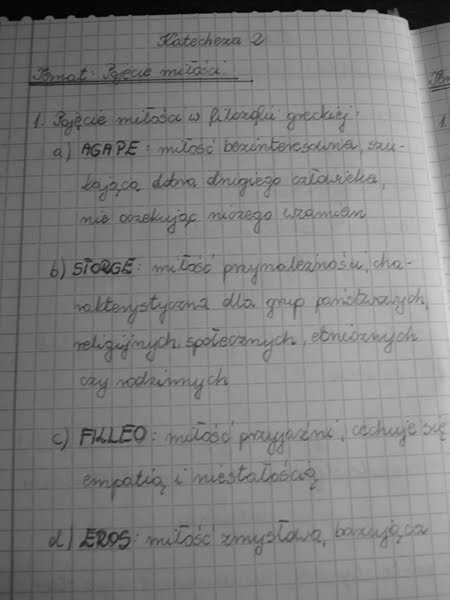 Katecheza 2
Temat: Pojęcie miłości.
1. Pojęcie miłości w filozofii greckiej:
a) AGAPE: miłość bezinteresowna, szu-
kająca dobra drugiego człowieka,
nie oczekując niczego wzamian
b) STORGE: miłość przynależności, cha-
rakterystyczna dla grup państwowych,
religijnych, społecznych, etnicznych
czy rodzinnych
c) FILLEO: miłość przyjaźni, cechuje się
empatią i niestałością
d) EROS: miłość zmysłowa, bazująca
1.